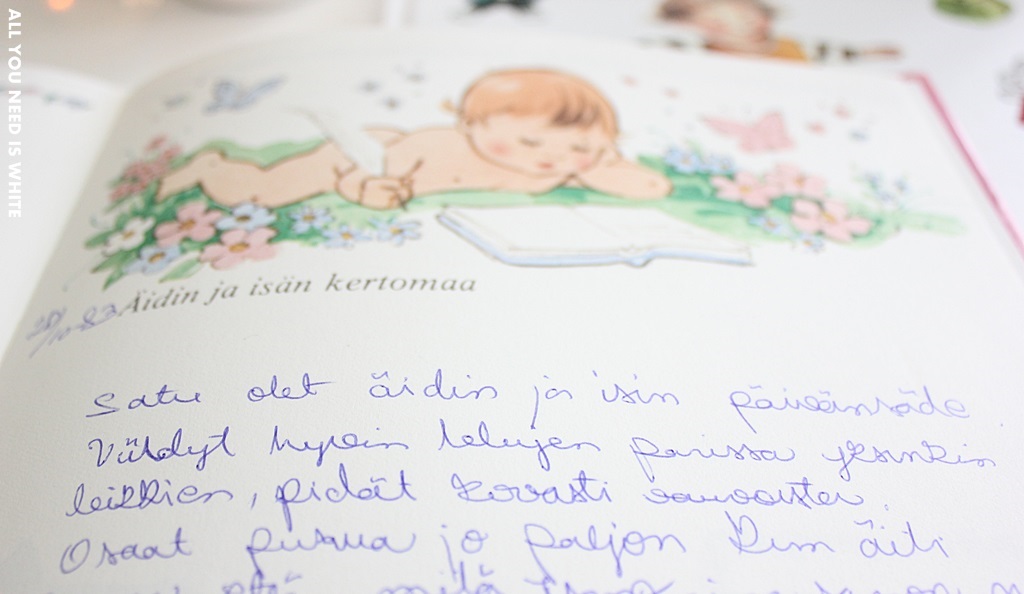 ALL YOU NEED IS WHITE
Äidin ja isän kertomaa
28/10-83
Satu olet äidin ja isin päivänsäde
Viihdyt hyvin lelujen parissa yksinkin
leikkien, pidät kovasti
Osaat puhua jo paljon Kun äiti
mitä